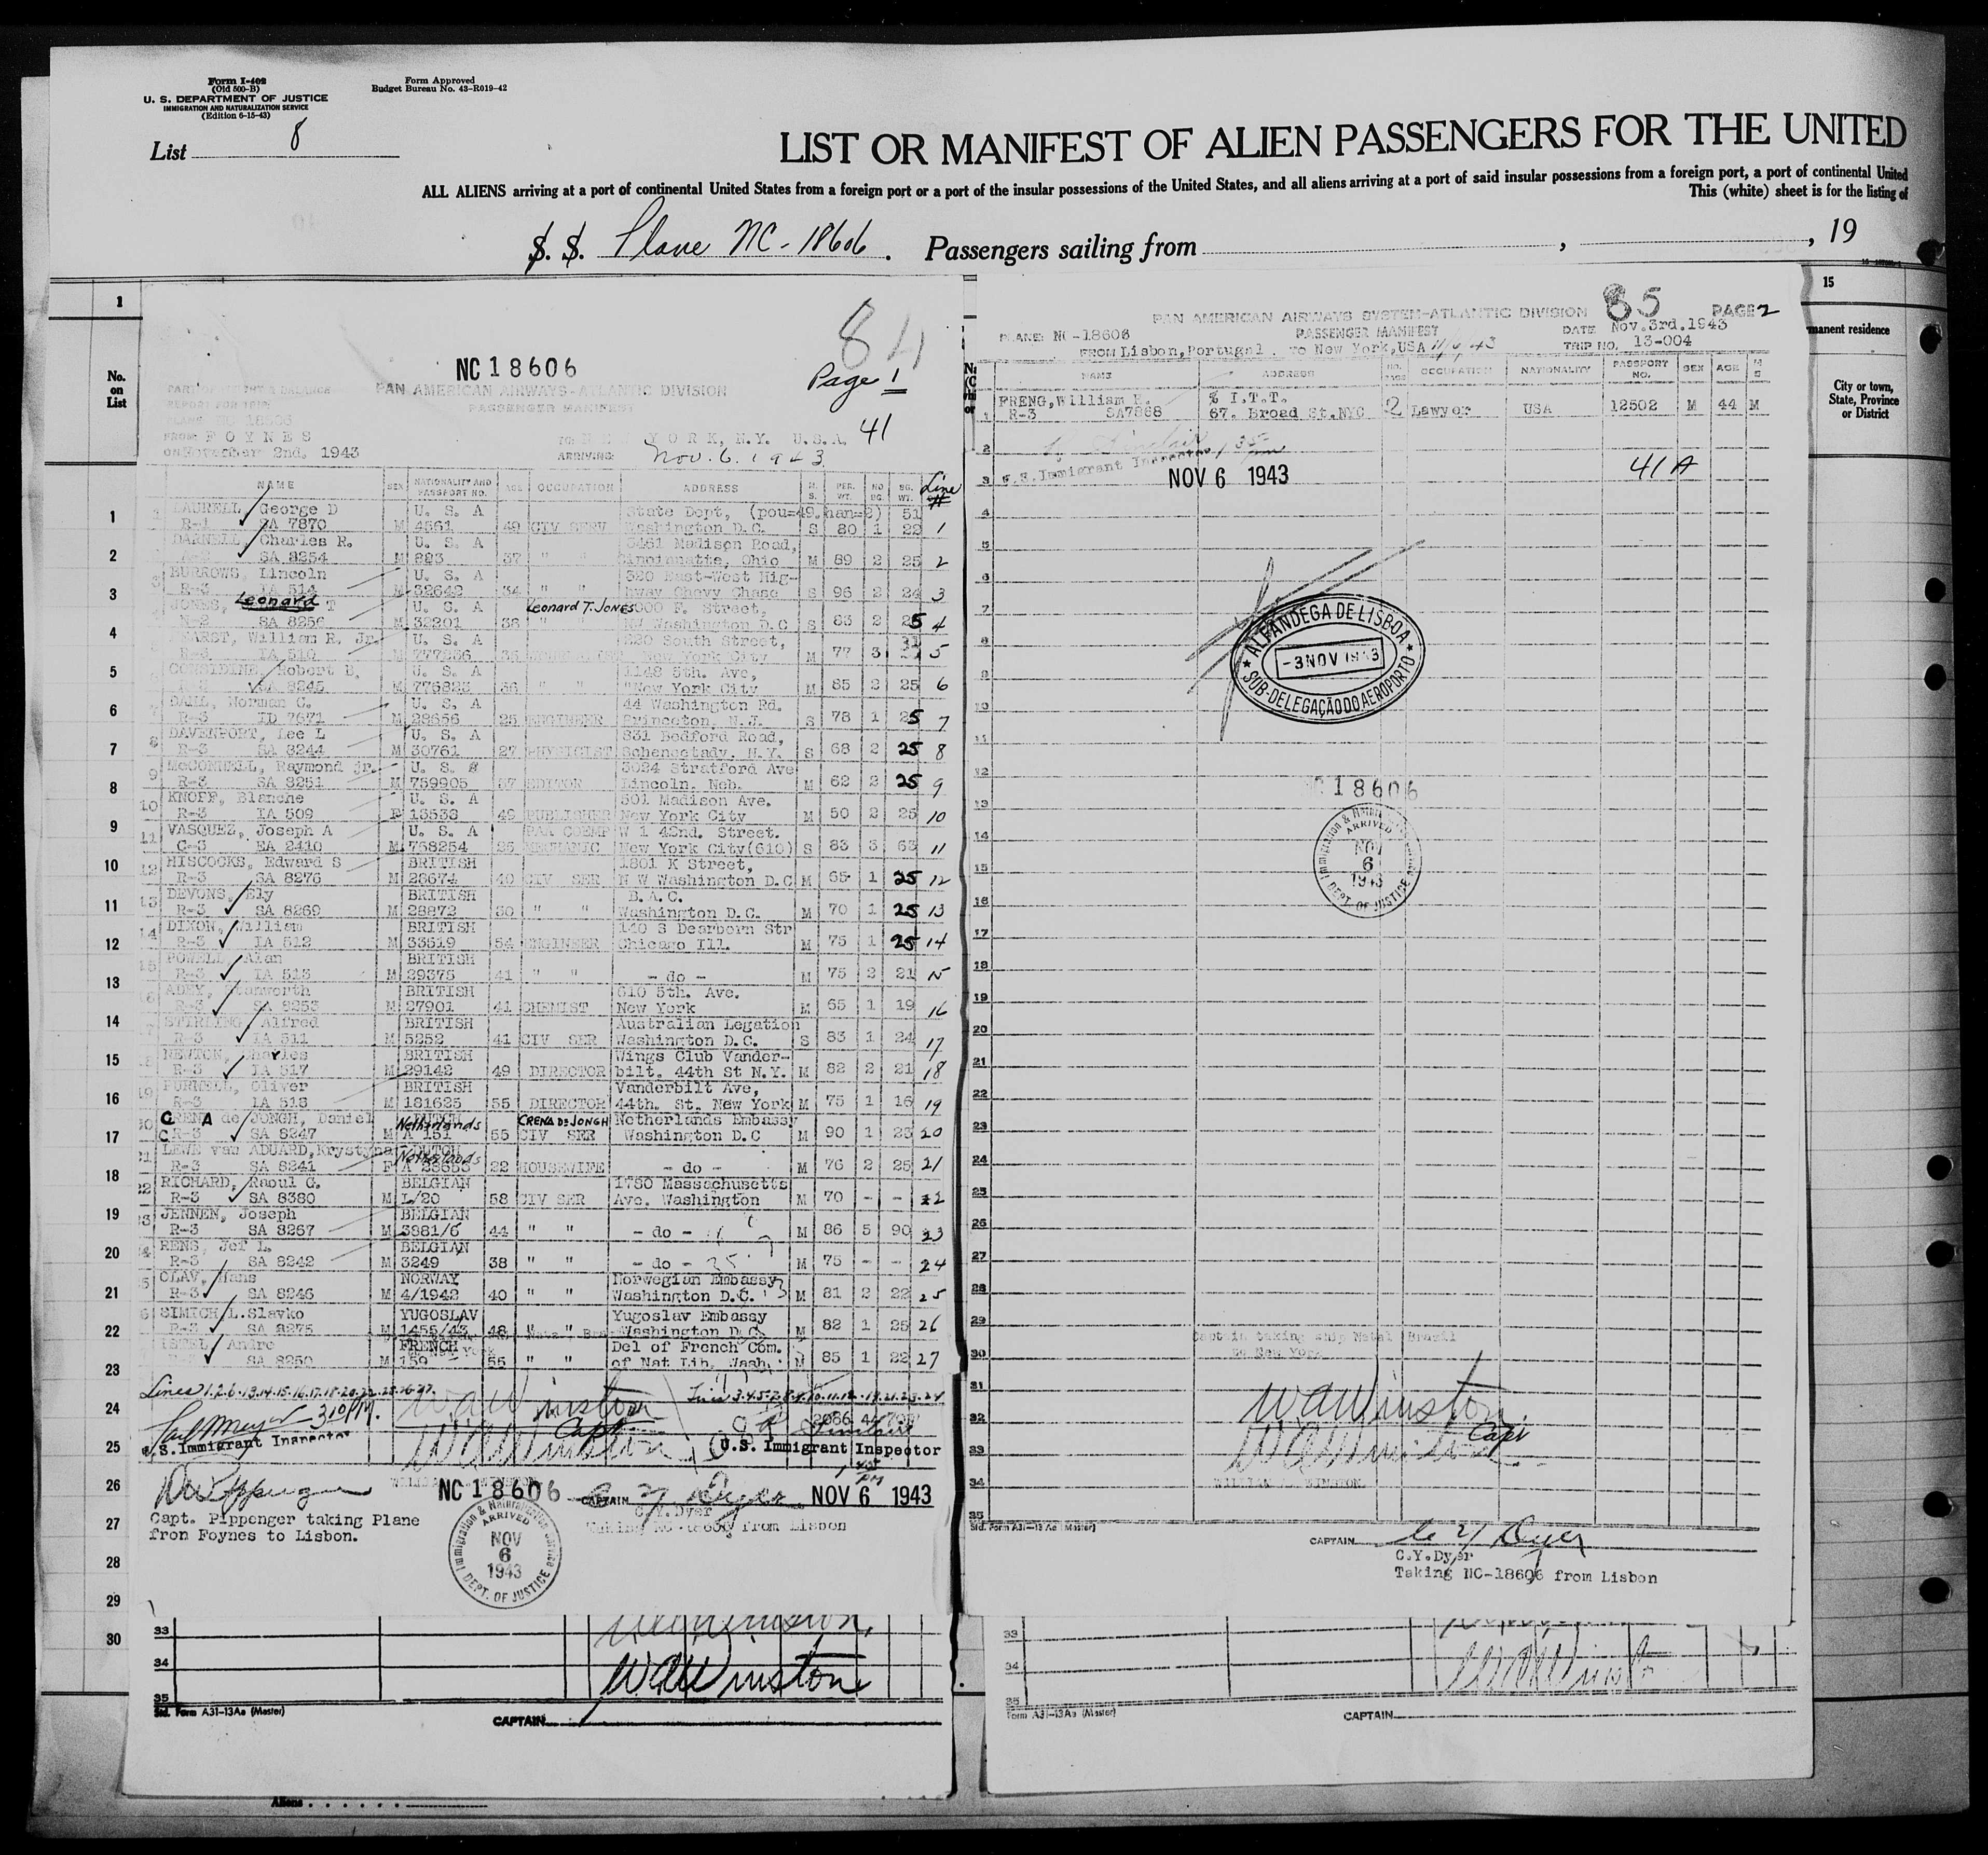 Form I-402
(Old 500-B)
U. S. DEPARTMENT OF JUSTICE
IMMIGRATION AND NATURALIZATION SERVICE
(Edition 6-15-43)
Form Approved
Budget Bureau No. 43-R019-42
List 8
LIST OR MANIFEST OF ALIEN PASSENGERS FOR THE UNITED
ALL ALIENS arriving at a port of continental United States from a foreign port or a port of the insular possessions of the United States, and all aliens arriving at a port of said insular possessions from a foreign port, a port of continental United
This (white) sheet is for the listing of
S. S. Plane NC-18606. Passengers sailing from , , 19
1
No. on List
84
NC 18606
Page 1
PAN AMERICAN AIRWAYS-ATLANTIC DIVISION
PASSENGER MANIFEST
41
FROM FOYNES
TO: NEW YORK, N.Y. U.S.A.
on November 2nd. 1943
ARRIVING: Nov. 6. 1943
NAME SEX NATIONALITY AND PASSPORT NO. AGE OCCUPATION ADDRESS M. S. PER. WT. NO BG. BG. WT. Line #
LAURELL, George D U. S. A State Dept, (pou=49.han=2) 51
R-1 SA 7870 M 4561 49 CIV SERV Washington D.C. S 80 1 22 1
DARNELL, Charles R. U. S. A 3461 Madison Road,
SA 8254 M 883 37 " " Cincinnatte, Ohio M 89 2 25 2
BURROWS, Lincoln U. S. A 320 East-West Hig-
R-3 IA 514 M 32642 34 " " hway Chevy Chase S 96 2 24 3
JONES, Leonard T U. S. A Leonard T. JONES 2000 F. Street,
R-2 SA 8256 M 32201 36 " " NW Washington D.C S 83 2 25 4
HEARST, William R. Jr. U. S. A 220 South Street, 31
R-3 IA 510 M 777256 35 New York City M 77 3 5
CONSIDINE, Robert B. U. S. A 1148 5th. Ave,
SA 8245 M 775823 36 " " New York City M 85 2 25 6
DAHL, Norman C. U. S. A 44 Washington Rd.
R-3 ID 7671 M 28656 25 ENGINEER Princeton, N.J. S 78 1 25 7
DAVENPORT, Lee L U. S. A 831 Bedford Road,
R-3 SA 8244 M 30761 27 PHYSICIST Schenectady. N.Y. S 68 2 25 8
McCONNELL, Raymond jr. U. S. A 3024 Stratford Ave
R-3 SA 8251 M 759905 57 EDITOR Lincoln. Neb. M 62 2 25 9
KNOPF, Blanche U. S. A 501 Madison Ave.
R-3 IA 509 F 13538 49 PUBLISHER New York City M 50 2 25 10
VASQUEZ, Joseph A U. S. A PAA COEMP W 1 42nd. Street.
C-3 EA 2410 M 758254 26 MECHANIC New York City(610) S 83 3 63 11
HISCOCKS, Edward S BRITISH 1801 K Street,
R-3 SA 8276 M 28674 40 CIV SER N W Washington D.C M 65 1 25 12
DEVONS, Ely BRITISH B.A.C.
R-3 SA 8269 M 28872 30 " " Washington D.C. M 70 1 25 13
DIXON, William BRITISH 140 S Dearborn Str
R-3 IA 512 M 33519 54 ENGINEER Chicago Ill. M 75 1 25 14
POWELL, Alan BRITISH
R-3 IA 513 M 29375 41 " " - do - M 75 2 21 15
ADEY, BRITISH 610 5th. Ave.
R-3 SA 8253 M 27901 41 CHEMIST New York M 65 1 19 16
STIRLING, Alfred BRITISH Australian Legation
R-3 IA 511 M 5252 41 CIV SER Washington D.C. S 83 1 24 17
NEWTON, Charles BRITISH Wings Club Vander-
R-3 IA 517 M 29142 49 DIRECTOR bilt. 44th St N.Y. M 82 2 21 18
PURNELL, Oliver BRITISH Vanderbilt Ave,
IA 518 M 181625 55 DIRECTOR 44th. St. New York M 75 1 16 19
CRENA de JONGH, Daniel DUTCH Netherlands CRENA De JONGH Netherlands Embassy
R-3 SA 8247 M A 151 55 CIV SER Washington D.C M 90 1 23 20
LEWE van ADUARD, Krystyna DUTCH Netherlands
R-3 SA 8241 F A 28653 22 HOUSEWIFE - do - M 76 2 25 21
RICHARD, Raoul G. BELGIAN 1780 Massachusetts
R-3 SA 8380 M L/20 58 CIV SER Ave. Washington M 70 - - 22
JENNEN, Joseph BELGIAN
R-3 SA 8267 M 3881/6 44 " " - do - M 86 5 90 23
RENS, Jef L. BELGIAN
R-3 SA 8242 M 3249 38 " " - do - M 75 - - 24
OLAV, Hans NORWAY Norwegian Embassy
R-3 SA 8246 M 4/1942 40 " " Washington D.C. M 81 2 22 25
SIMICH L.Slavko YUGOSLAV Yugoslav Embassy
R-3 SA 8275 M 1455/43 48 " " Washington D.C. M 82 1 25 26
ISTEL, Andre FRENCH Del of French Com.
SA 8250 M 159 55 " " of Nat Lib. Wash. M 85 1 22 27
Lines 1.2.6.13.14.15.16.17.18.20.22.25.26.27.
310 PM.
U.S. Immigrant Inspector
WAWinston
Capt
U.S. Immigrant Inspector
NC 18606
CAPTAIN C Y Dyer
NOV 6 1943
C.Y.Dyer
Taking NC-18606 from Lisbon
Capt. Pippenger taking Plane
from Foynes to Lisbon.
Immigration & Naturalization Service
ARRIVED
NOV
6
1943
DEPT. OF JUSTICE
33
34
WAWinston
35
Std. Form A31-13Aa (Master)
CAPTAIN
Aliens
85
PAN AMERICAN AIRWAYS SYSTEM-ATLANTIC DIVISION PAGE 2
PLANE: NC-18606 PASSENGER MANIFEST DATE Nov.3rd.1943
FROM Lisbon,Portugal. to New York,USA 11/6/43 TRIP NO. 13-004
NAME ADDRESS OCCUPATION NATIONALITY PASSPORT NO. SEX AGE
FRENG,William R. % I.T.T.
1 R-3 SA7868 67. Broad St.NYC. 2 Lawyer USA 12502 M 44 M
U.S. Immigrant Inspector
NOV 6 1943
41 A
ALFANDEGA DE LISBOA
-3 NOV 1943
SUB-DELEGAÇÃO DO AEROPORTO
18606
Immigration &
ARRIVED
NOV
6
1943
DEPT. OF JUSTICE
Captain taking ship Natal Brazil
to New York
WAWinston
Capt
WILLIAM A. WINSTON
Std. Form A31-13 Aa (Master)
CAPTAIN C Y Dyer
C.Y.Dyer
Taking NC-18606 from Lisbon
33
34
35
Form A31-13Aa (Master)
CAPTAIN
15
manent residence
City or town, State, Province or District